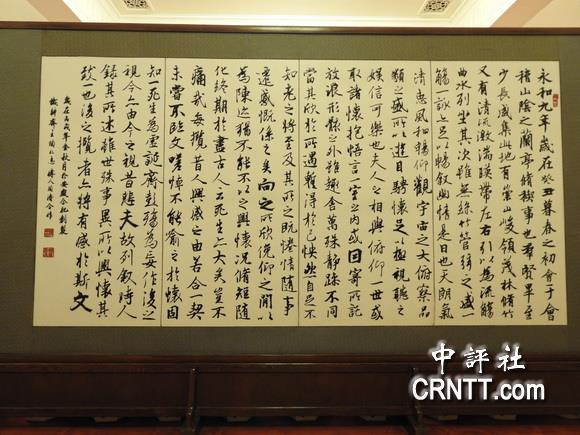 永和九年歲在癸丑暮春之初會于會
稽山陰之蘭亭脩禊事也羣賢畢至
少長咸集此地有崇山峻領茂林脩竹
又有清流激湍暎帶左右引以為流觴
曲水列坐其次雖無絲竹管弦之盛一
觴一詠亦足以暢敘幽情是日也天朗氣
清惠風和暢仰觀宇宙之大俯察品
類之盛所以遊目騁懷足以極視聽之
娛信可樂也夫人之相與俯仰一世或
取諸懷抱悟言一室之內或因寄所託
放浪形骸之外雖趣舍萬殊靜躁不同
當其欣於所遇暫得於己怏然自足不
知老之將至及其所之既惓情隨事
遷感慨係之矣向之所欣俛仰之間以
為陳迹猶不能不以之興懷況脩短隨
化終期於盡古人云死生亦大矣豈不
痛哉每攬昔人興感之由若合一契
未嘗不臨文嗟悼不能喻之於懷固
知一死生為虛誕齊彭殤為妄作後之
視今亦由今之視昔悲夫故列敘時人
錄其所述雖世殊事異所以興懷其
致一也後之攬者亦將有感於斯文
歲在丙戌年金秋月於安徽合肥
合作
中評社
CRNTT.com